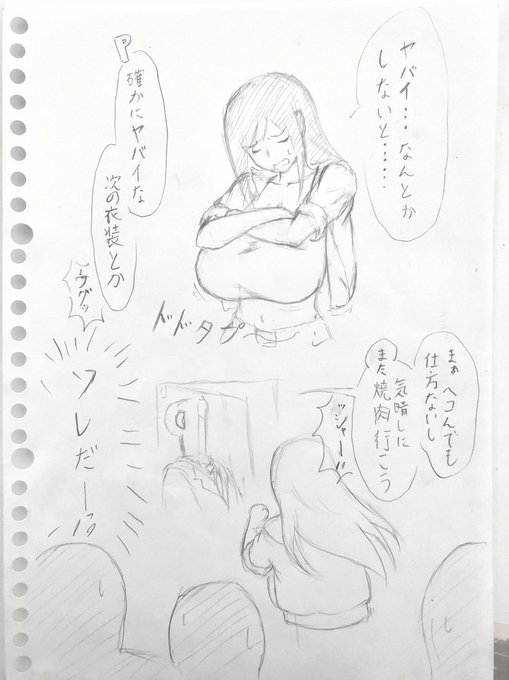 ヤバイ・・・なんとか
しないと・・・・
P
確かにヤバイな
次の衣装とか
ウグッ
ドドタプ
まぁ ヘコんでも
仕方ないし
気晴しに
また焼肉行こう
ッシャーッ
ソレだーーッ